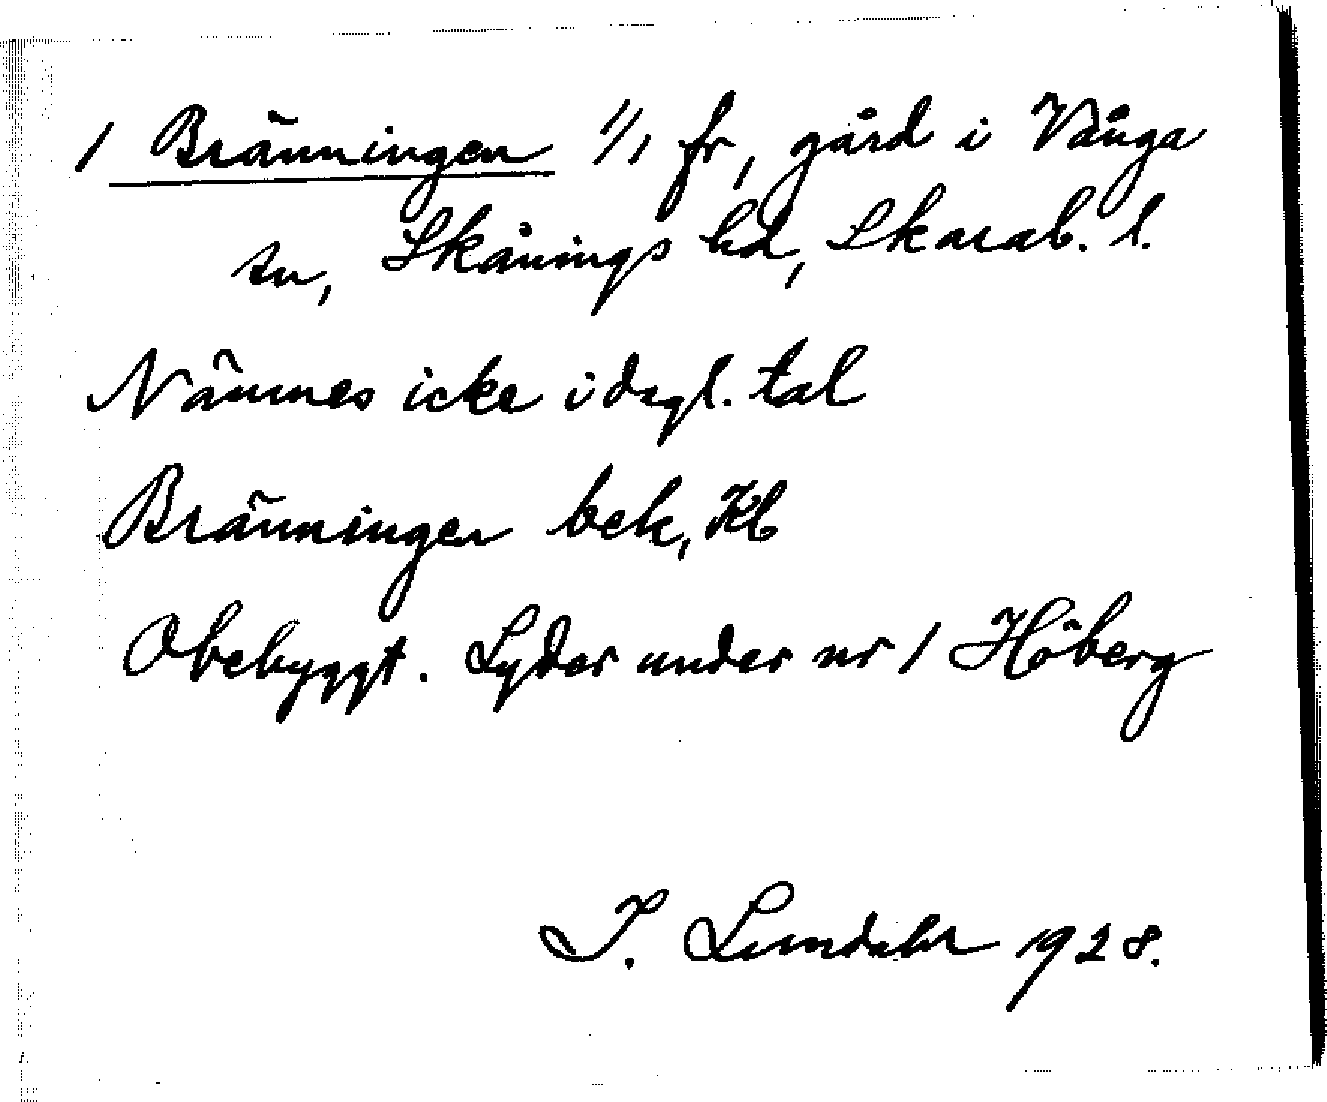 1 Bränningen 1/1 fr, gård i Vånga
sn, Skånings hd, Skarab. l.
Nämnes icke i dagl. tal
Bränningen bek, Kb
Obebyggt. Lyder under nr 1 Höberg
I. Lundahl 1928.